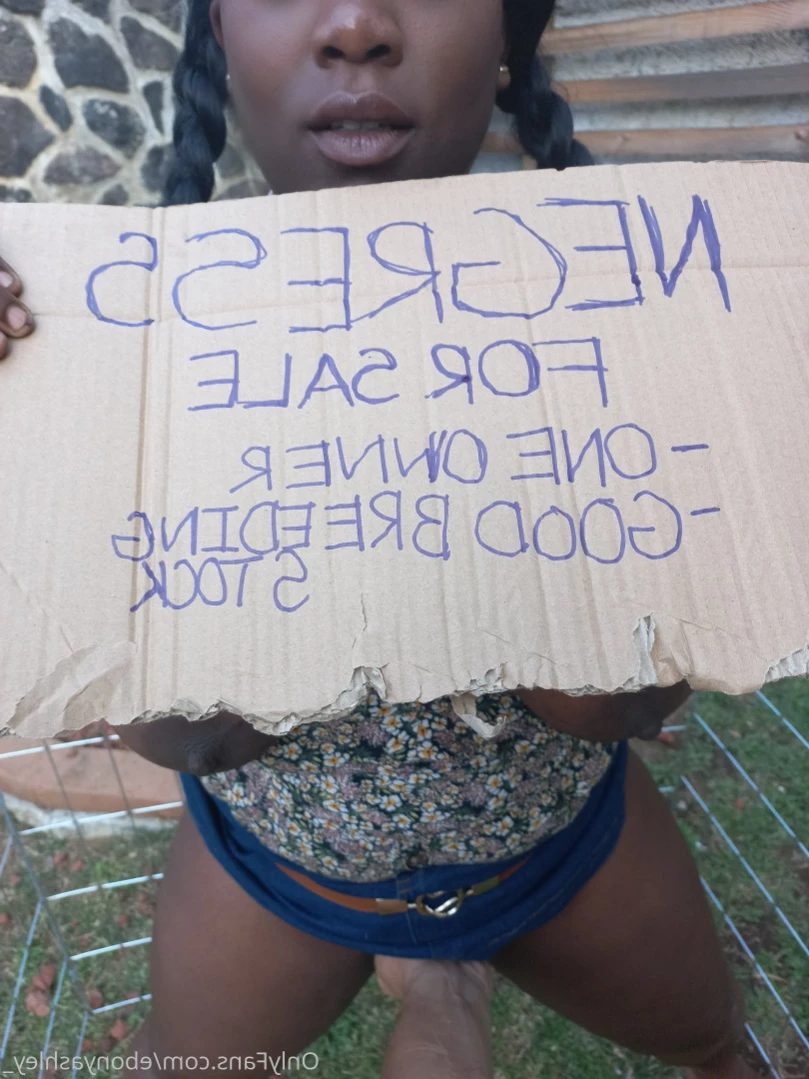 NEGRESS
FOR SALE
-ONE OWNER
-GOOD BREEDING
STOCK
OnlyFans.com/ebonyashley_